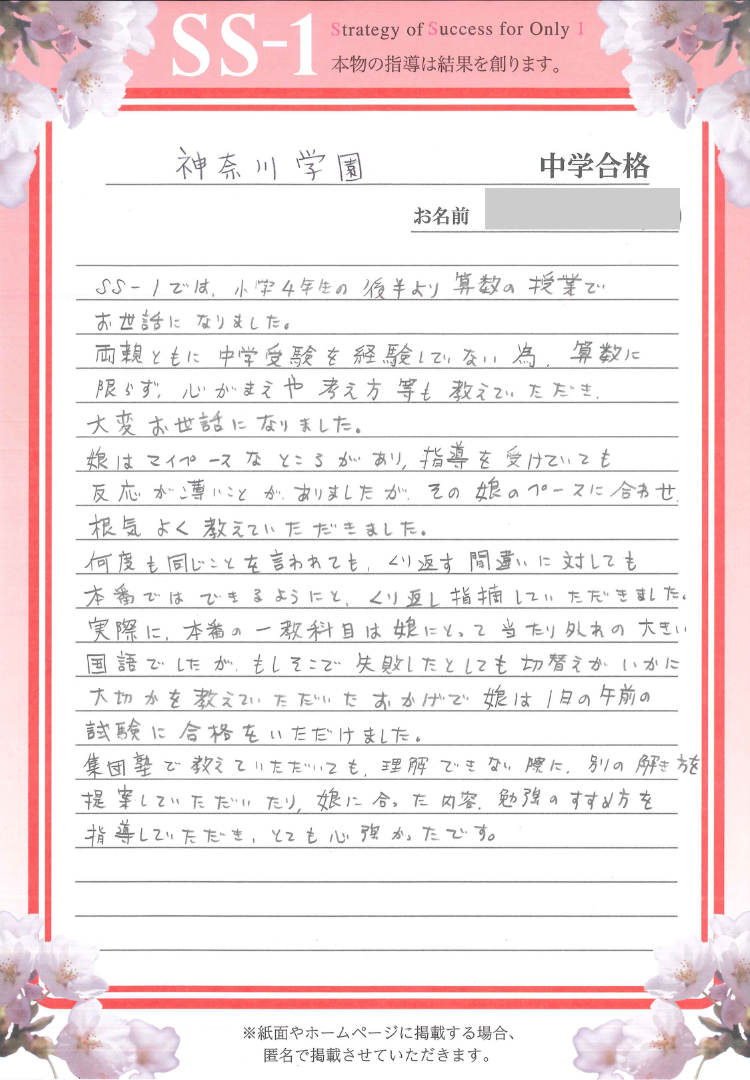 SS-1 Strategy of Success for Only 1
本物の指導は結果を創ります。
神奈川学園 中学合格
お名前
SS-1では、小学4年生の後半より算数の授業で
お世話になりました。
両親ともに中学受験を経験していない為、算数に
限らず、心がまえや考え方等も教えていただき、
大変お世話になりました。
娘はマイペースなところがあり、指導を受けていても
反応が薄いことがありましたが、その娘のペースに合わせ、
根気よく教えていただきました。
何度も同じことを言われても、くり返す間違いに対しても
本番ではできるようにと、くり返し指摘していただきました。
実際に、本番の一教科目は娘にとって当たり外れの大きい
国語でしたが、もしそこで失敗したとしても切替えがいかに
大切かを教えていただいたおかげで娘は1日の午前の
試験に合格をいただけました。
集団塾で教えていただいても、理解できない際に、別の解き方を
提案していただいたり、娘に合った内容、勉強のすすめ方を
指導していただき、とても心強かったです。
※紙面やホームページに掲載する場合、
匿名で掲載させていただきます。